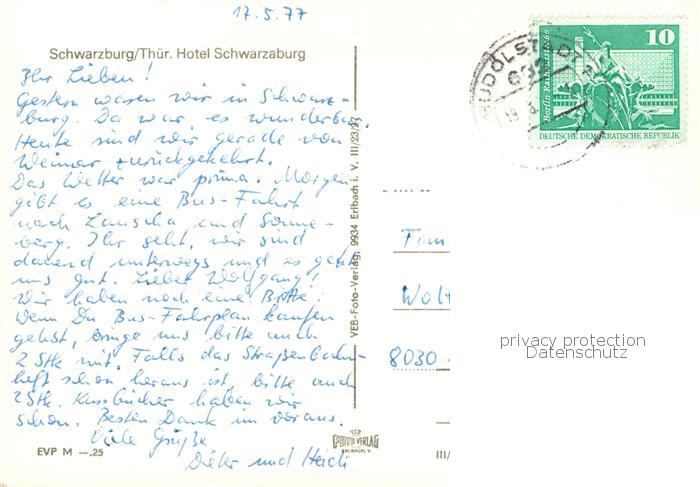 17.5.77
Schwarzburg/Thür. Hotel Schwarzaburg
Ihr Lieben!
Gestern waren wir in Schwarz-
burg. Da war es wunderbar.
Heute sind wir gerade von
Weimar zurückgekehrt.
Das Wetter war prima. Morgen
gibt es eine Bus-Fahrt
nach Lauscha und Sonne-
berg. Ihr seht, wir sind
dauernd unterwegs und es geht
uns gut. Lieber Wolfgang!
Wir haben noch eine Bitte:
Wenn Du Bus-Fahrplan kaufen
gehst, bringe uns bitte auch
2 Stk mit. Falls das Straßenbahn-
heft schon heraus ist, bitte auch
2 Stk. Kursbücher haben wir
schon. Besten Dank im voraus.
Viele Grüße
Dieter und Heidi
EVP M —,25
VEB-Foto-Verlag, 9934 Erlbach i. V. III/23/27
FOTO VERLAG
ERLBACH V.
III/
RUDOLSTADT
10
Berlin
DEUTSCHE DEMOKRATISCHE REPUBLIK
Fam
Wolf
8030
privacy protection
Datenschutz